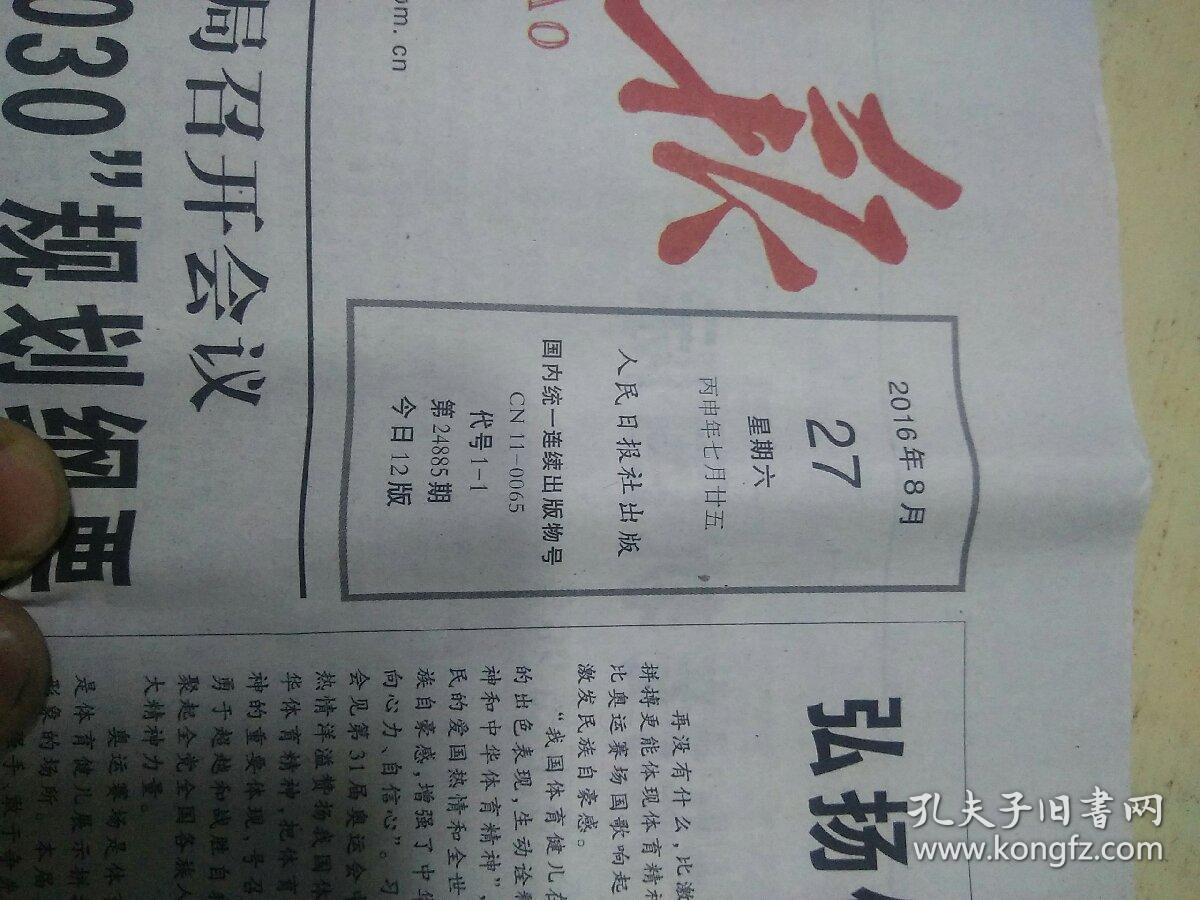 报
AO
om.cn
2016年8月
27
星期六
丙申年七月廿五
人民日报社出版
国内统一连续出版物号
CN 11-0065
代号1-1
第24885期
今日12版
局召开会议
030”规划纲要
弘扬
再没有什么,比激
拼搏更能体现体育精神
比奥运赛场国歌响起
激发民族自豪感。
“我国体育健儿在
的出色表现,生动诠释
神和中华体育精神”,
民的爱国热情和全世
族自豪感,增强了中华
向心力、自信心”。习
会见第31届奥运会中
热情洋溢赞扬我国体
华体育精神,把体育
神的重要体现,号召
勇于超越和战胜自我
聚起全党全国各族人
大精神力量。
奥运赛场是体
是体育健儿展示拼
形象的场所。本届
孔夫子旧书网
www.kongfz.com